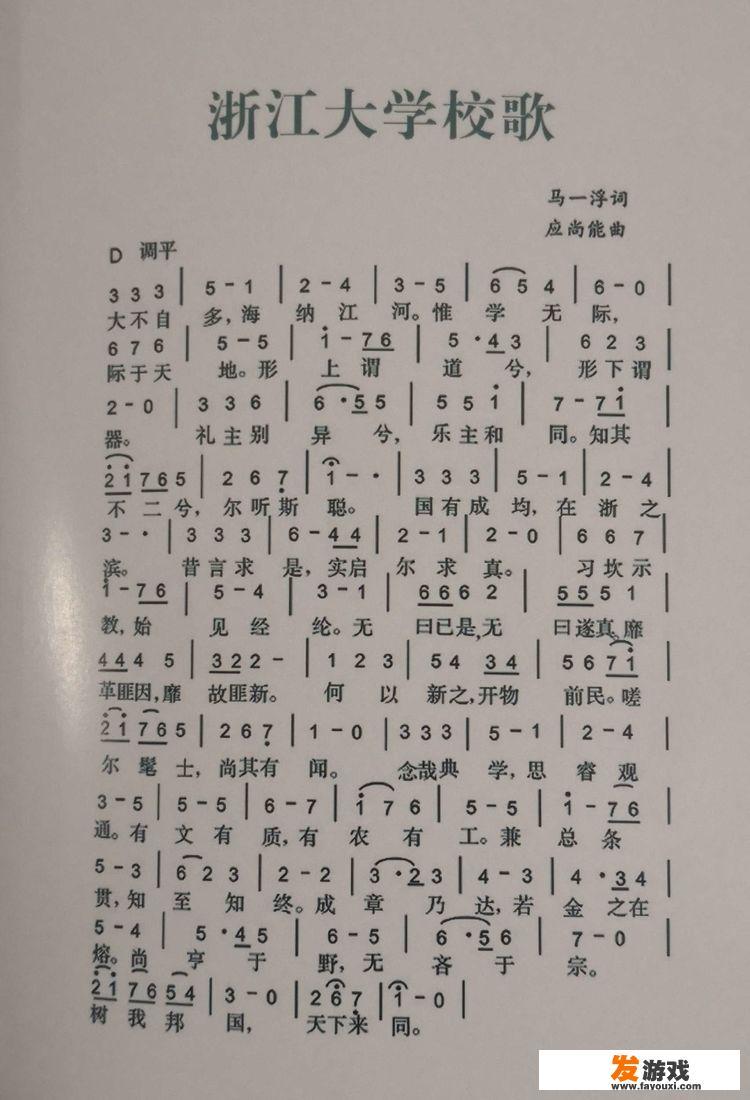 浙江大学校歌
马一浮词
应尚能曲
D 调平
3 3 3 | 5 - 1 | 2 - 4 | 3 - 5 | 6 5 4 | 6 - 0 |
大不自 多,海 纳 江 河。惟 学 无 际,
6 7 6 | 5 - 5 | 1 - 7 6 | 5 · 4 3 | 6 2 3 |
际于天 地。形 上 谓 道 兮, 形下谓
2 - 0 | 3 3 6 | 6 · 5 5 | 5 5 1 | 7 - 7 1 |
器。 礼主别 异 兮, 乐主和 同。知其
2 1 7 6 5 | 2 6 7 | 1 - · | 3 3 3 | 5 - 1 | 2 - 4 |
不 二 兮, 尔听斯 聪。 国有成 均,在 浙 之
3 - · | 3 3 3 | 6 - 4 4 | 2 - 1 | 2 - 0 | 6 6 7 |
滨。 昔言求 是,实启 尔 求 真。 习坎示
1 - 7 6 | 5 - 4 | 3 - 1 | 6 6 6 2 | 5 5 5 1 |
教,始 见 经 纶。无 曰已是,无 曰遂真。靡
4 4 4 5 | 3 2 2 - | 1 2 3 | 5 4 3 4 | 5 6 7 1 |
革匪因,靡 故匪新。 何 以 新之,开物 前民。嗟
2 1 7 6 5 | 2 6 7 | 1 - 0 | 3 3 3 | 5 - 1 | 2 - 4 |
尔 髦 士, 尚其有 闻。 念哉典 学,思 睿 观
3 - 5 | 5 - 5 | 6 - 7 | 1 7 6 | 5 - 5 | 1 - 7 6 |
通。有 文 有 质,有 农 有 工。兼 总 条
5 - 3 | 6 2 3 | 2 - 2 | 3 · 2 3 | 4 - 3 | 4 · 3 4 |
贯,知 至 知 终。成 章 乃 达,若 金 之在
5 - 4 | 5 · 4 5 | 6 - 5 | 6 · 5 6 | 7 - 0 |
熔。尚 亨 于 野,无 吝 于 宗。
2 1 7 6 5 4 | 3 - 0 | 2 6 7 | 1 - 0 |
树 我 邦 国, 天下来 同。
发游戏
www.fayouxi.com